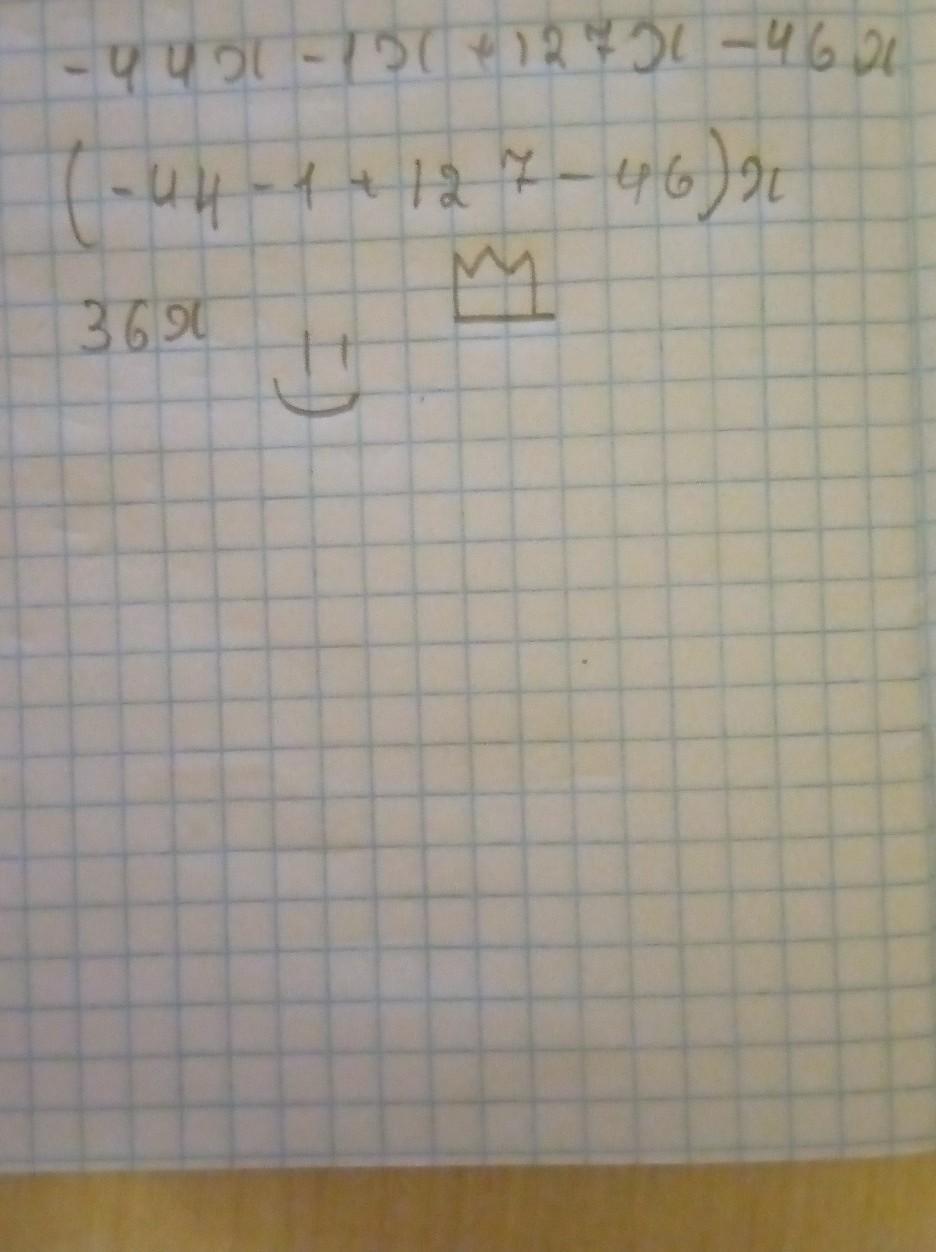 -44x - 1x + 127x - 46x
(-44 - 1 + 127 - 46)x
36x